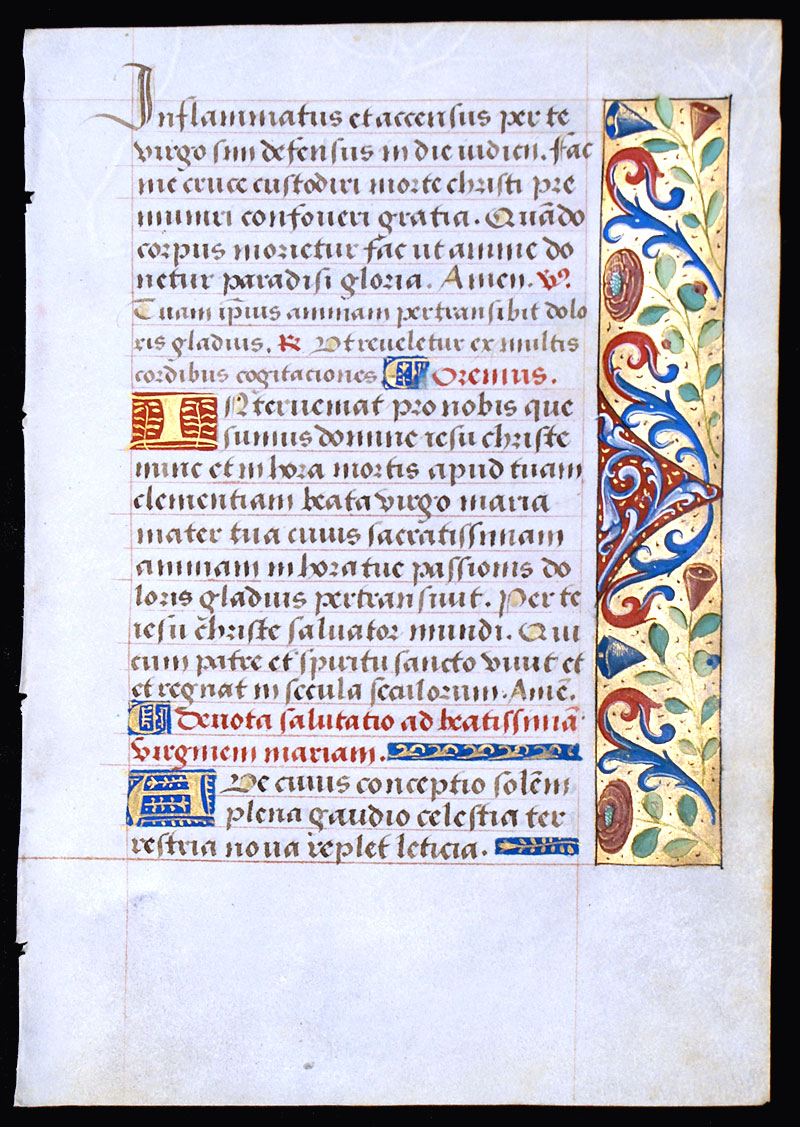 Inflammatus et accensus per te
virgo sim defensus in die iudicii. Fac
me cruce custodiri morte christi pre
muniri confoueri gratia. Quãdo
corpus morietur fac ut anime do
netur paradisi gloria. Amen. V̉.
Tuam ip̃ius animam pertransibit dolo
ris gladius. R Vt reueletur ex multis
cordibus cogitaciones Oremus.
INteruemat pro nobis que
sumus domine iesu christe
nunc et in hora mortis apud tuam
clementiam beata virgo maria
mater tua cuius sacratissimam
animam in hora tue passionis do
loris gladius pertransiuit. Per te
iesu christe saluator mundi. Qui
cum patre et spiritu sancto viuit et
et regnat in secula seculorum. Amẽ.
Deuota salutatio ad beatissimã
virginem mariam.
AVe cuius conceptio solẽm
plena gaudio celestia ter
restria noua replet leticia.